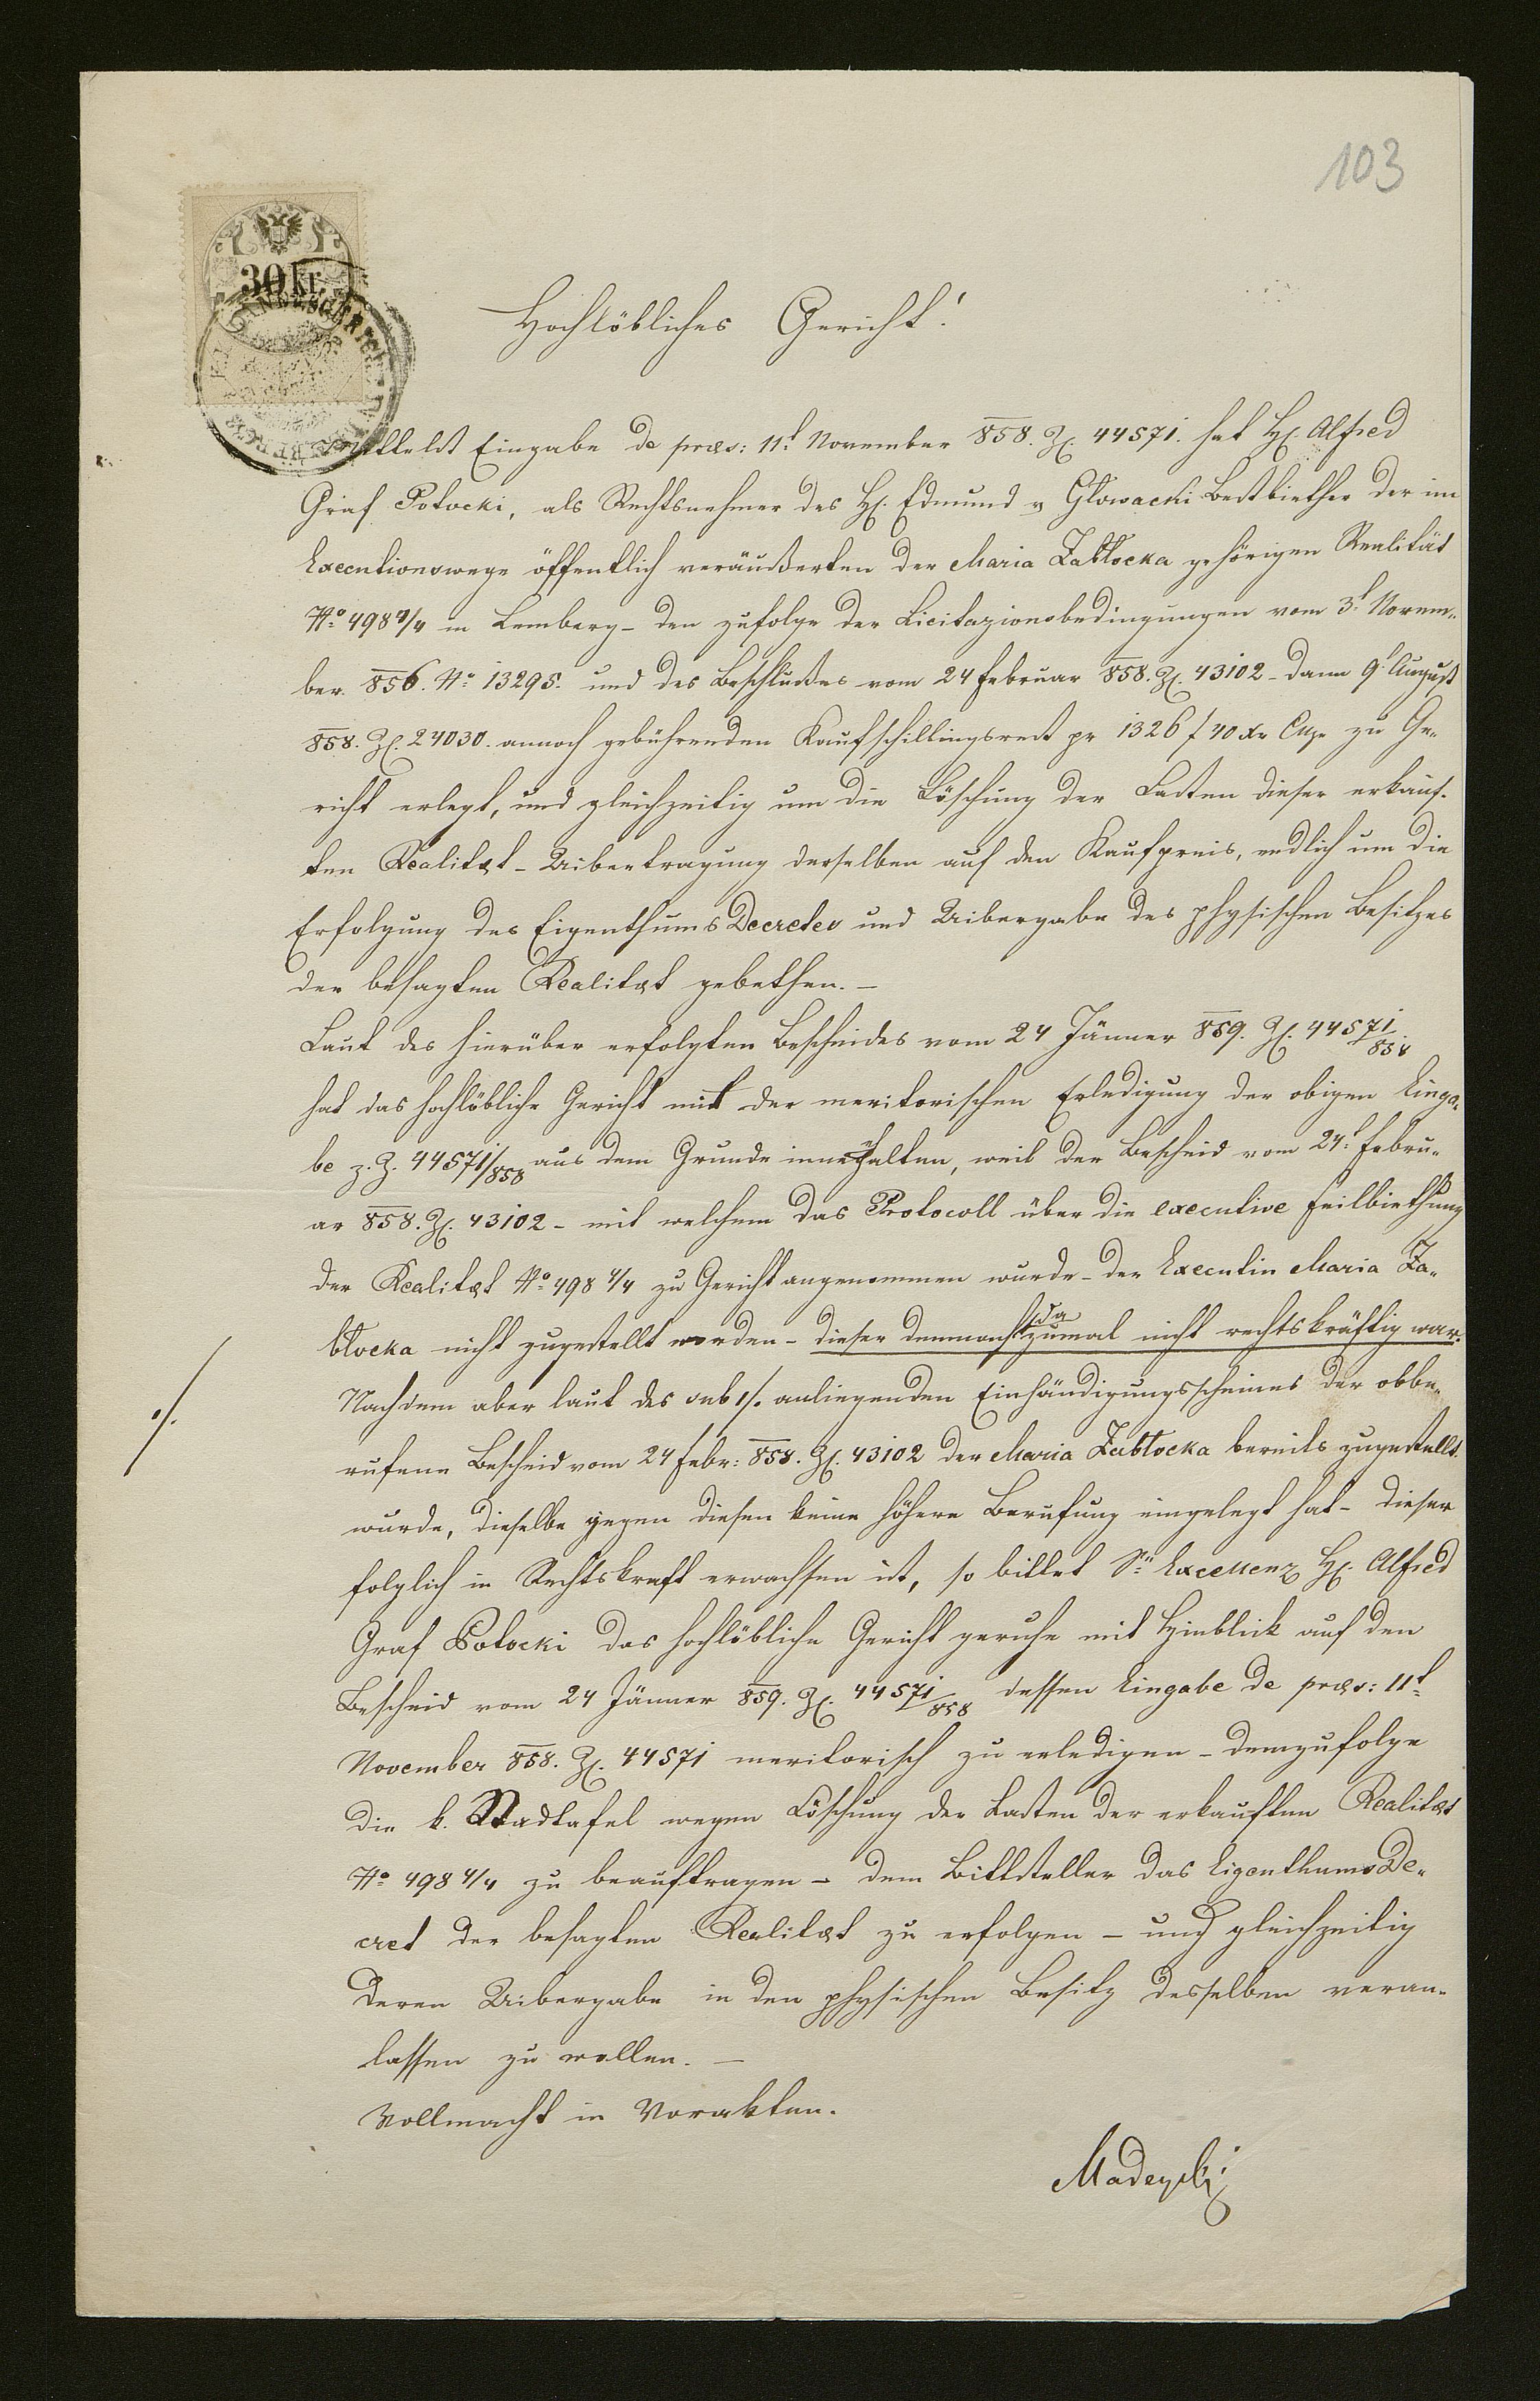 103
30 kr.
Hochlöbliches Gericht!
Mittelst Eingabe de praes: 11t November 858. Zl. 44571. hat H. Alfred
Graf Potocki, als Rechtsnehmer des H. Edmund v Głowacki Bestbiether der im
Executionswege öffentlich veräußerten der Maria Zabłocka gehörigen Realität
No 498 4/4 in Lemberg – den zufolge der Licitazionsbedingungen vom 3t Novem-
ber 856. No 13295. und des Beschlußes vom 24 Februar 858. Zl. 43102 – dann 9t August
858. Zl. 24030. annoch gebührenden Kaufschillingsrest pr 1326 f 40 xr CMze zu Ge-
richt erlegt, und gleichzeitig um die Löschung der Lasten dieser erkauf-
ten Realitæt – Uibertragung derselben auf den Kaufpreis, endlich um die
Erfolgung des Eigenthums Decretes und Uibergabe des physischen Besitzes
der besagten Realitæt gebethen. –
Laut des hierüber erfolgten Bescheides vom 24 Jänner 859. Zl. 44571/858
hat das hochlöbliche Gericht mit der meritorischen Erledigung der obigen Einga-
be z. Z. 44571/858 aus dem Grunde innegehalten, weil der Bescheid vom 24t Febru-
ar 858. Zl. 43102 – mit welchem das Protocoll über die executive Feilbiethung
der Realitæt No 498 4/4 zu Gericht angenommen wurde – der Executin Maria Za-
błocka nicht zugestellt worden – dieser demnach dazumal nicht rechtskräftig war.
Nachdem aber laut des sub 1/. anliegenden Einhändigungsscheines der obbe-
1/.
rufene Bescheid vom 24 Febr: 858. Zl. 43102 der Maria Zabłocka bereits zugestellt
wurde, dieselbe gegen diesen keine höhere Berufung eingelegt hat – dieser
folglich in Rechtskraft erwachsen ist, so bittet Se Excellenz H. Alfred
Graf Potocki das hochlöbliche Gericht geruhe mit Hinblick auf den
Bescheid vom 24 Jänner 859. Zl. 44571/858 dessen Eingabe de praes: 11t
November 858. Zl. 44571 meritorisch zu erledigen – demzufolge
die k. Stadtafel wegen Löschung der Lasten der erkauften Realitæt
No 498 4/4 zu beauftragen – dem Bittsteller das Eigenthums De-
cret der besagten Realitæt zu erfolgen – und gleichzeitig
deren Uibergabe in den physischen Besitz desselben veran-
lassen zu wollen. –
Vollmacht in Vorakten.
Madeyski